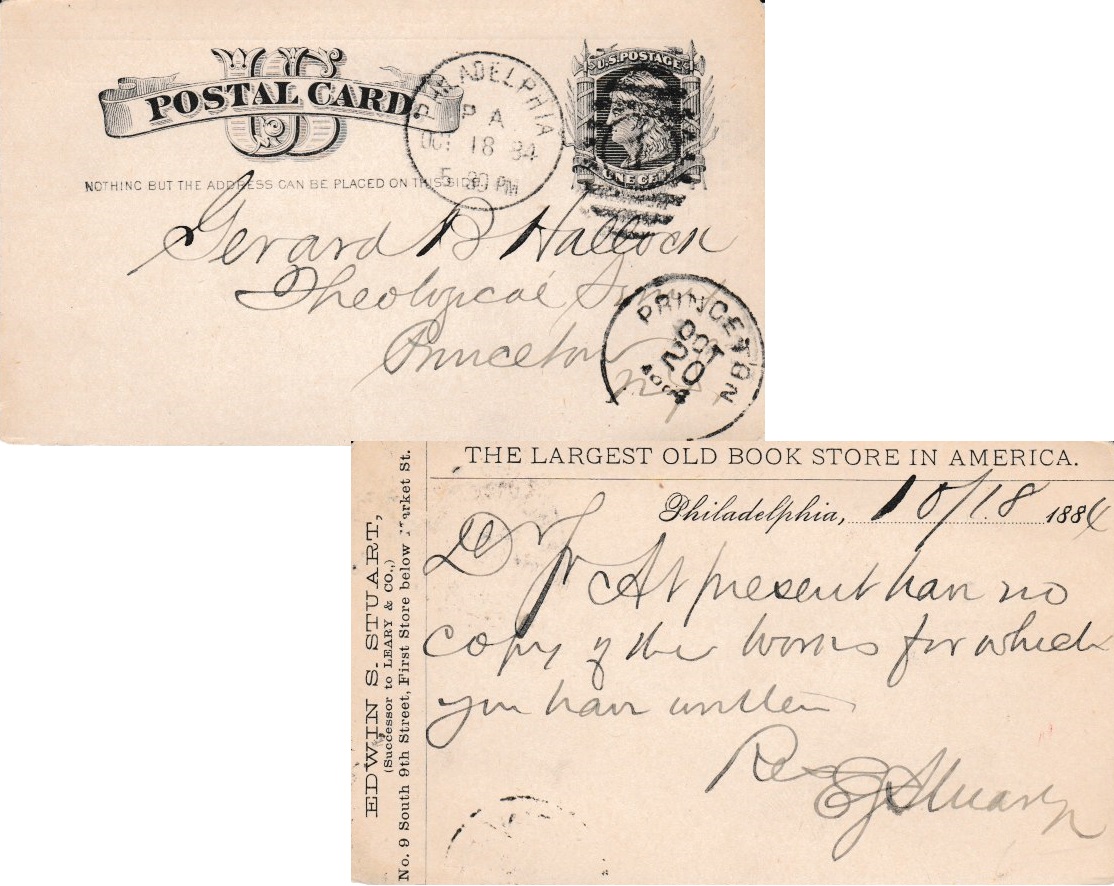 US
POSTAL CARD
NOTHING BUT THE ADDRESS CAN BE PLACED ON THIS SIDE.
PHILADELPHIA
PA
OCT 18 84
5 30 PM
U.S. POSTAGE
ONE CENT
Gerard B Hallock
Theological Sem
Princeton
N J
PRINCETON
OCT
20
THE LARGEST OLD BOOK STORE IN AMERICA.
Philadelphia, 10/18 1884
EDWIN S. STUART,
(Successor to LEARY & CO.,)
No. 9 South 9th Street, First Store below Market St.
D Sr At present have no
copy of the works for which
you have written
Res
E S Stuart